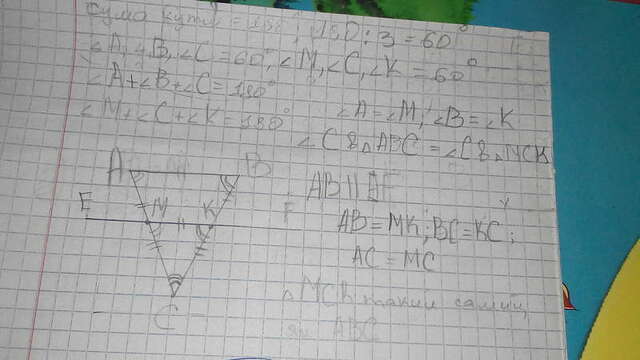 сума кутів = 180°, 180 : 3 = 60°
∠A, ∠B, ∠C = 60°, ∠M, ∠C, ∠K = 60°
∠A+∠B+∠C = 180°
∠M+∠C+∠K = 180°
∠A = ∠M; ∠B = ∠K
∠C В △ABC = ∠C В △MCK
A B
AB || EF
E M K F
AB = MK; BC = KC;
AC = MC
C
△MCK такий самий,
як ABC